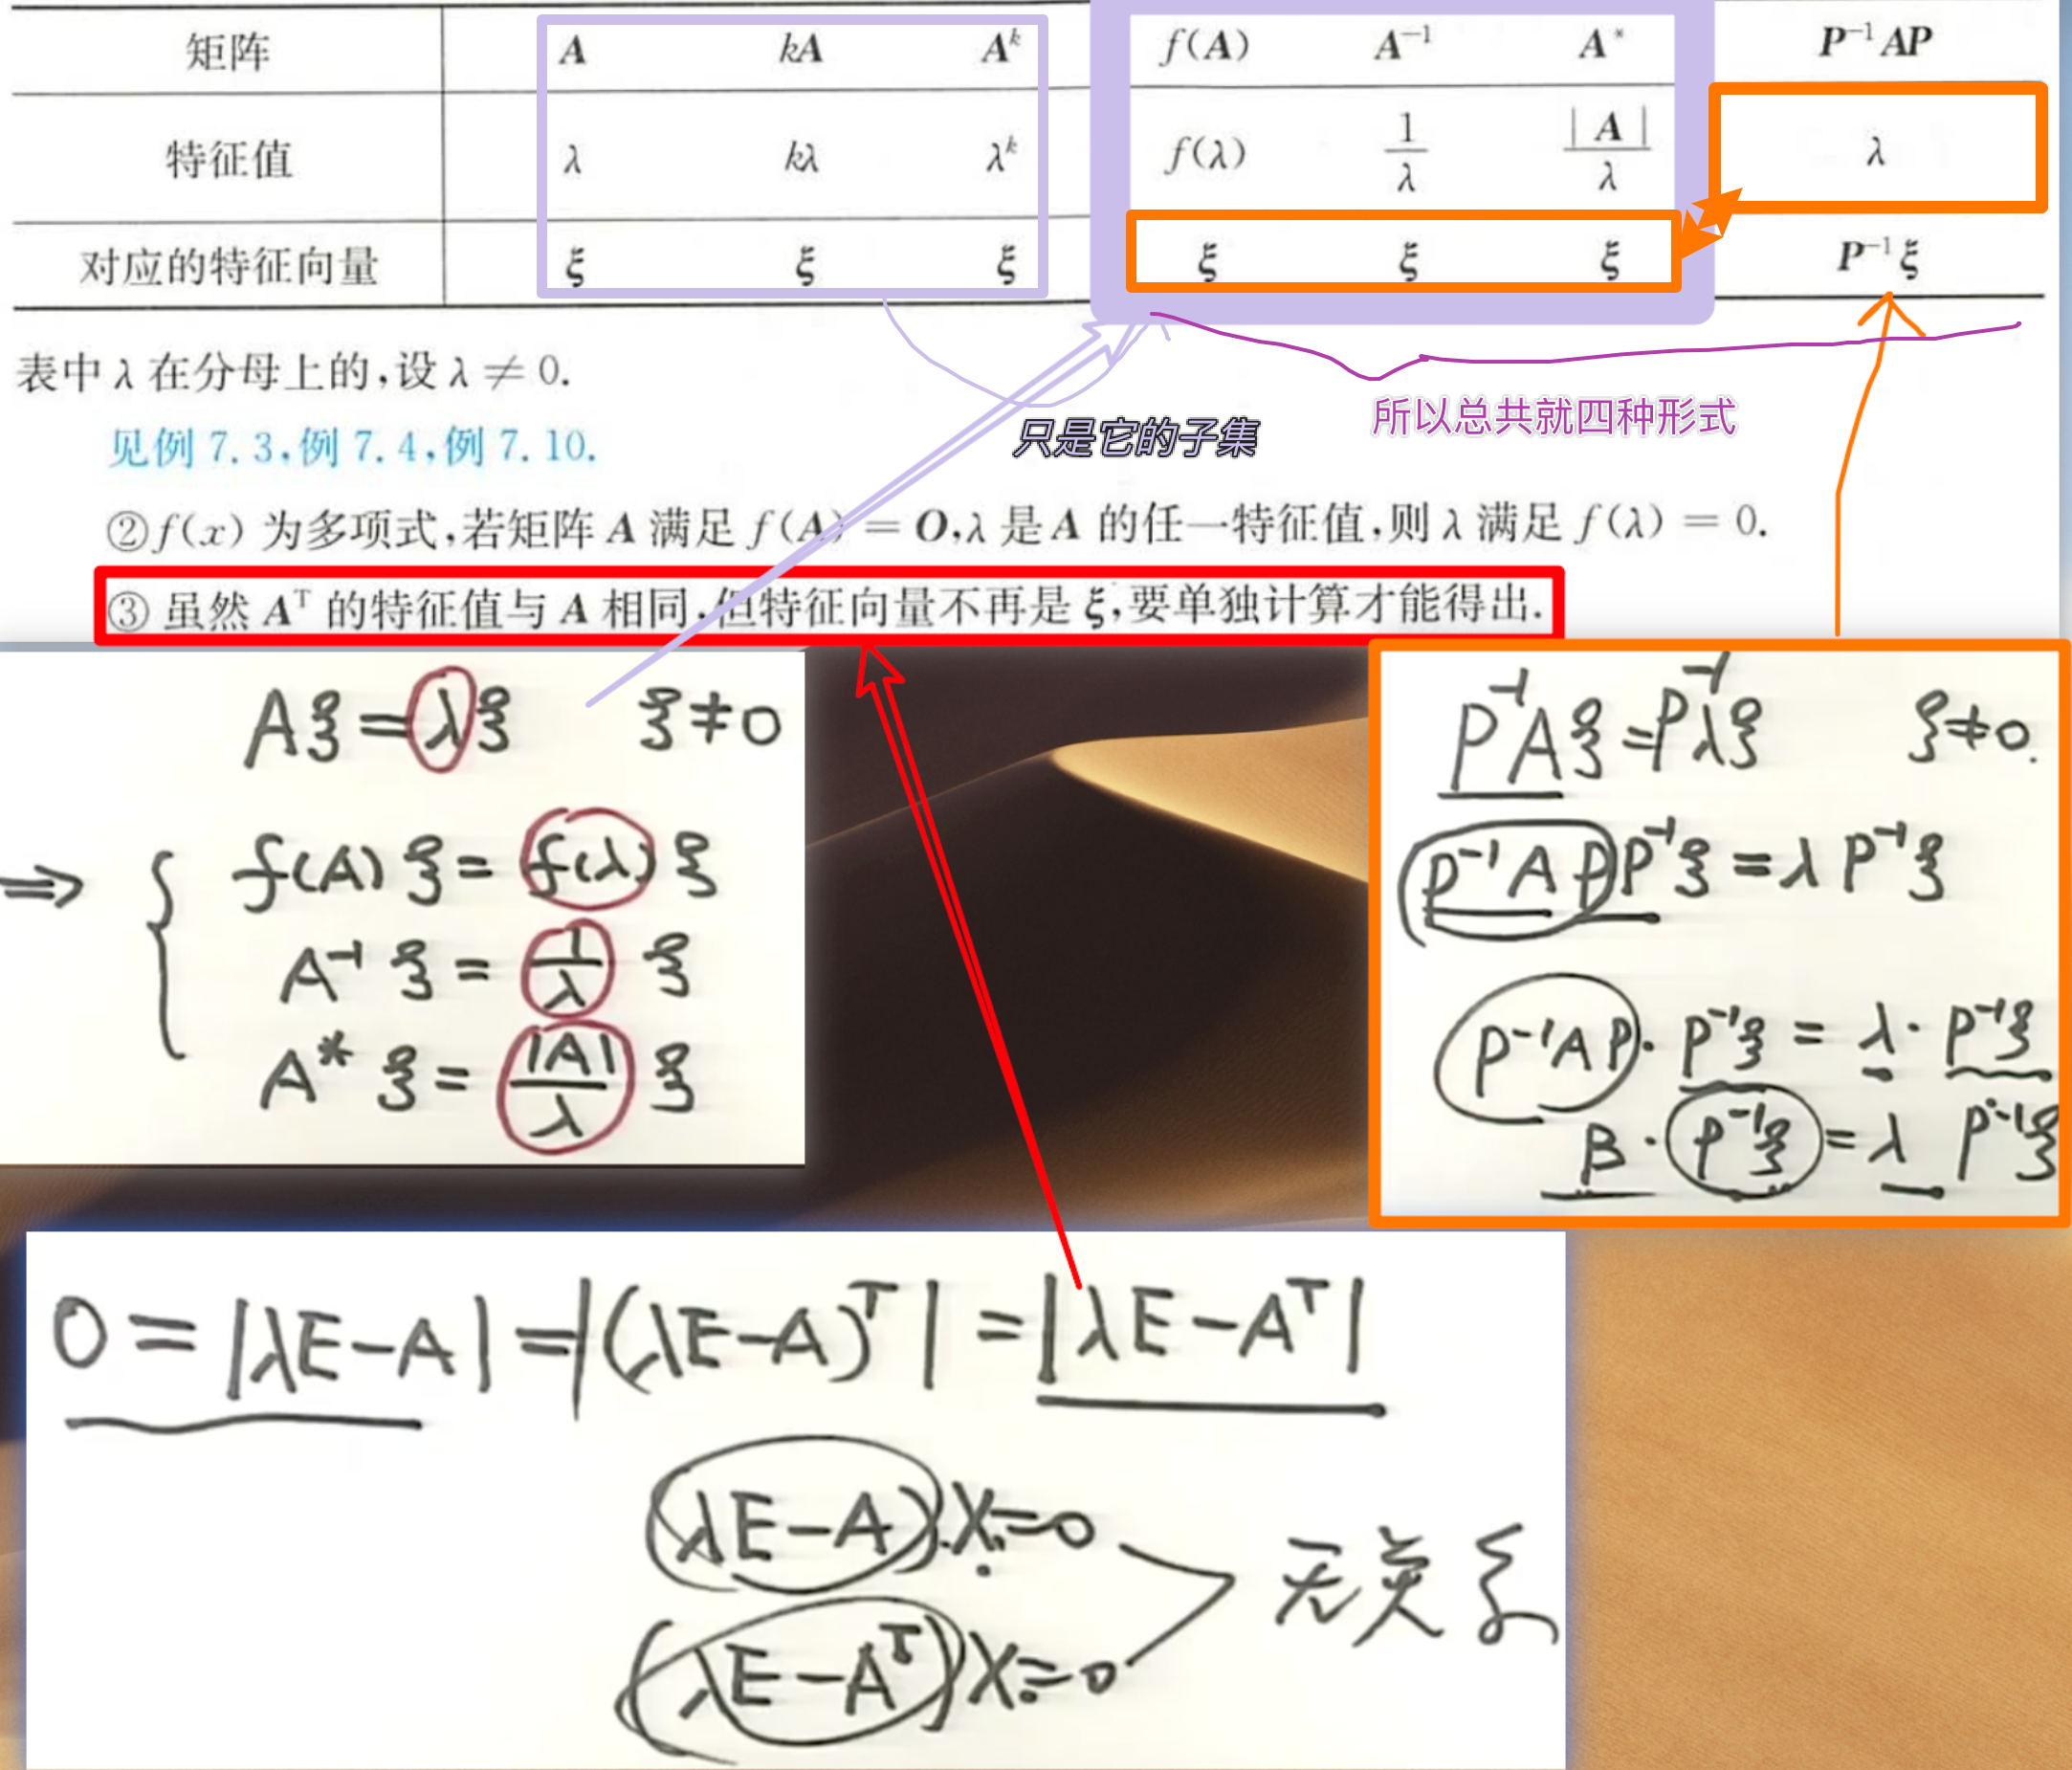 矩阵 A kA Aᵏ f(A) A⁻¹ A* P⁻¹AP
特征值 λ kλ λᵏ f(λ) 1/λ |A|/λ λ
对应的特征向量 ξ ξ ξ ξ ξ ξ P⁻¹ξ
表中 λ 在分母上的,设 λ ≠ 0.
只是它的子集
所以总共就四种形式
见例 7.3,例 7.4,例 7.10.
②f(x) 为多项式,若矩阵 A 满足 f(A) = O,λ 是 A 的任一特征值,则 λ 满足 f(λ) = 0.
③ 虽然 Aᵀ 的特征值与 A 相同,但特征向量不再是 ξ,要单独计算才能得出.
Aξ=λξ ξ≠0
⇒ { f(A)ξ=f(λ)ξ
A⁻¹ξ=1/λ ξ
A*ξ=|A|/λ ξ
P⁻¹Aξ=P⁻¹λξ ξ≠0.
(P⁻¹AP)P⁻¹ξ=λP⁻¹ξ
P⁻¹AP·P⁻¹ξ=λ·P⁻¹ξ
B·P⁻¹ξ=λP⁻¹ξ
0=|λE-A|=|(λE-A)ᵀ|=|λE-Aᵀ|
(λE-A)X=0
无关系
(λE-Aᵀ)X=0